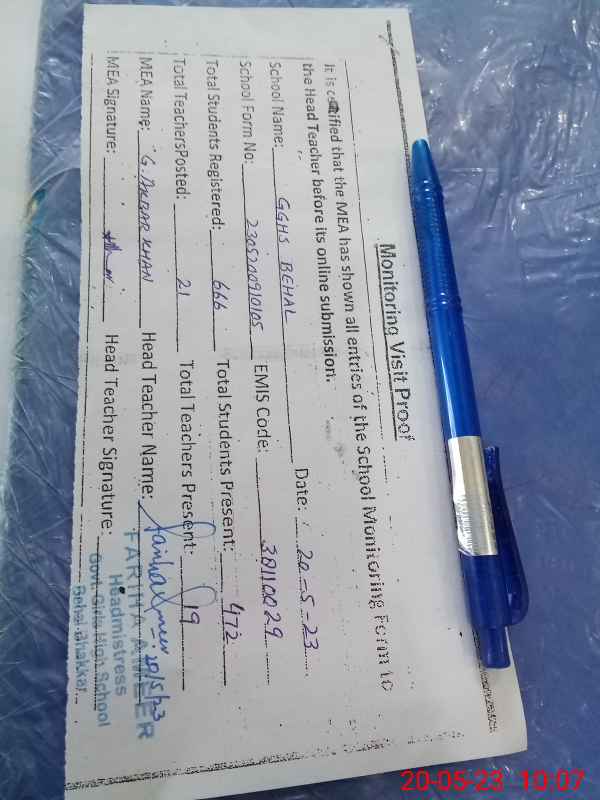 Monitoring Visit Proof
It is certified that the MEA has shown all entries of the School Monitoring Form to
the Head Teacher before its online submission.
School Name: GGHS BEHAL Date: 20-5-23
School Form No: 2305200910105 EMIS Code: 38110029
Total Students Registered: 666 Total Students Present: 472
Total TeachersPosted: 21 Total Teachers Present: 19
MEA Name: G. AKBAR KHAN Head Teacher Name: 20/5/23
MEA Signature: Head Teacher Signature:
FARIHA AMEER
Headmistress
Govt. Girls High School
Behal Bhakkar
20-05-23 10:07